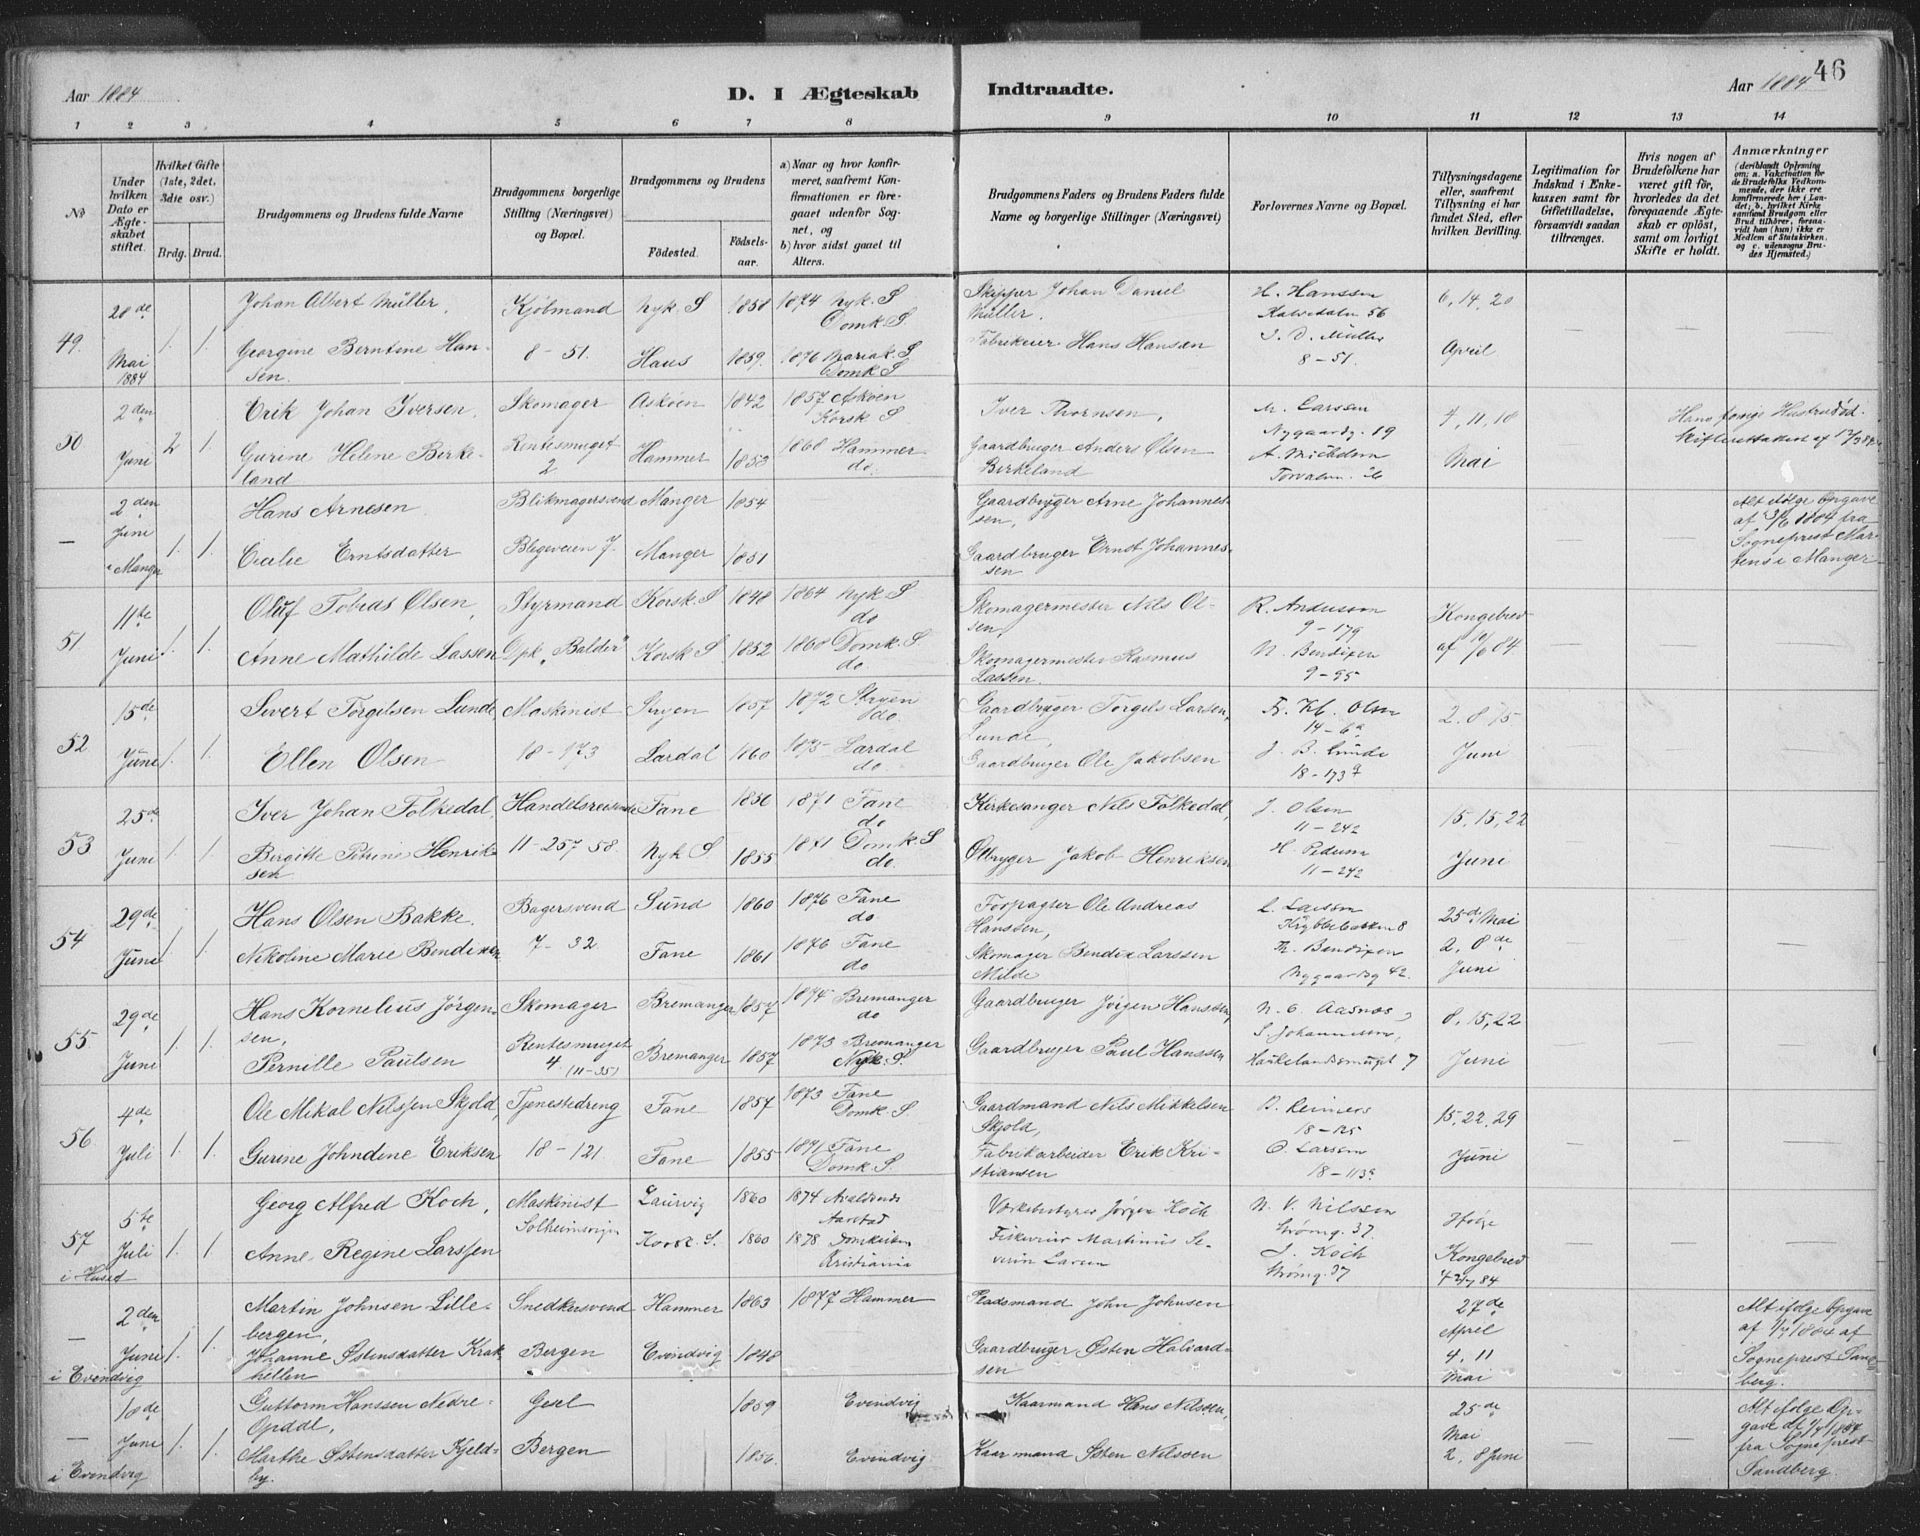 46
Aar 1884
D. I Ægteskab Indtraadte.
Aar 1884
1 2 3 4 5 6 7 8 9 10 11 12 13 14
No
Under hvilken Dato er Ægteskabet stiftet.
Hvilket Gifte (1ste, 2det, 3die osv.)
Brdg. Brud.
Brudgommens og Brudens fulde Navne
Brudgommens borgerlige Stilling (Næringsvei) og Bopæl.
Brudgommens og Brudens
Födested. Födselsaar.
a) Naar og hvor konfirmeret, saafremt Konfirmationen er foregaaet udenfor Sognet, og
b) hvor sidst gaaet til Alters.
Brudgommens Faders og Brudens Faders fulde Navne og borgerlige Stillinger (Næringsvei)
Forlovernes Navne og Bopæl.
Tillysningsdagene eller, saafremt Tillysning ei har fundet Sted, efter hvilken Bevilling.
Legitimation for Indskud i Enkekassen samt for Giftetilladelse, forsaavidt saadan tiltrænges.
Hvis nogen af Brudefolkene har været gift för, hvorledes da det foregaaende Ægteskab er oplöst, samt om lovligt Skifte er holdt.
Anmærkninger
(deriblandt Oplysning om: a. Vaccination for de Brudefolks Vedkommende, der ikke ere konfirmerede her i Landet; b. hvilket Kirkesamfund Brudgom eller Brud tilhörer, forsaavidt han (hun) ikke er Medlem af Statskirken, og c. udensogns Brudes Hjemsted.)
49. 28de Mai 1884 1. 1.
Johan Albert Müller, Kjöbmand Nyk. S 1858 1874 Nyk. S Domk. S. Skipper Johan Daniel Müller. H. Hanssen 56 6, 14, 20
Georgine Berntine Hansen. 8-51. Haus 1859. 1876 Mariak. S Domk. S Hans Hansen J. D. Müller 8-51 April
50 2den Juni 2 1.
Erik Johan Iversen, Skomager Asköen 1842 1857 Asköen Korsk S Iver M. Larssen Nygaardg. 19 4, 11, 18 Hans forrige Hustru död.
Gurine Helene Birkeland Rentesmuget 2 Hammer 1853 1868 Hammer do. Gaardbruger Anders Olsen Birkeland A. 26 Mai
— 2den Juni i Manger 1. 1.
Hans Arnesen Blikmagersvend Manger 1854 Gaardbruger Arne Johannessen,
Cecilie Erntsdatter Blegeveien 7. Manger 1851 Gaardbruger Ernst Johannessen
Alt ifölge Opgave af 1884 fra Sogneprest Martens i Manger
51 11te Juni 1. 1.
Oluf Tobias Olsen, Styrmand Korsk. S 1848 1864 Nyk S do Skomagermester Nils Olsen, 9-179 Kongebrev
Anne Mathilde Lassen Dpk "Balder" Korsk S 1852 1868 Domk. S do. Skomagermester Rasmus Lassen. N. Bendixen 9-95 af 10/6 84
52 15de Juni 1. 1.
Sivert Torgelsen Lunde, Maskinist Stryen 1857 1872 Stryen do. Gaardbruger Torgels Larsen Lunde, Olsen 14-6a 2. 8. 15
Ellen Olsen 18-173 Lardal 1860 1875 Lardal do. Gaardbruger Ole Jakobsen J. B. Lunde 18-173 Juni
53 25de Juni 1. 1.
Iver Johan Folkedal, Handelsreisende Fane 1850 1871 Fane do Kirkesanger Nils Folkedal, J. Olsen 11-242 15, 15, 22
Bergitte Petrine Henriksen 11-257 58. Nyk S 1855 1871 Domk. S do. Ölbryger Jakob Henriksen H. 11-242 Juni
54 29de Juni 1. 1.
Hans Olsen Bakke. Bagersvend Sund 1860 1876 Fane do Forpagter Ole Andreas Hanssen, L. Larssen 8 25de Mai
Nikoline Marie Bendixen 7-32 Fane 1861 1876 Fane do Skomager Bendix Larssen Milde Th. Bendixen Nygaardsg 42. 2. 8de Juni
55. 29de Juni 1. 1.
Hans Kornelius Jörgensen, Skomager Bremanger 1857 1874 Bremanger do Gaardbruger Jörgen Hanssen, N. C. Aasnes 8, 15, 22
Pernille Paulsen Rentesmuget 4 (11-35) Bremanger 1857 1873 Bremanger Nyk. S. Gaardbruger Paul Hanssen S. Johannessen, Haukelandsmuget 7 Juni
56. 4de Juli 1. 1.
Ole Mikal Nilssen Skjold, Tjenestedreng Fane 1857 1873 Fane Domk. S. Gaardmand Nils Mikkelsen Skjold, B. Reimers 18-125 15, 22, 29
Gurine Johndine Eriksen 18-121 Fane 1855 1871 Fane Domk. S. Fabrikarbeider Erik Kristiansen O. Larsen 18-113a Juni
57 i Huset 5te Juli 1. 1.
Georg Alfred Koch, Maskinist Laurvig 1860 1874 Avaldsnes Aarstad Jörgen Koch N. V. Nilssen Strömg. 37. Ifölge
Anne Regine Larssen Solheimsvigen Korsk. S. 1860 1878 Domkirken Kristiania Martinus Severin Larsen J. Koch Strömg. 37 Kongebrev 84
— i Evendvig 2den Juni 1. 1.
Martin Johnsen Lillebergen, Snedkersvend Hammer 1863 1877 Hammer Pladsmand John Johnsen 27de April
Johanne Östensdatter Krakhellen Bergen Evindvig 1848 Gaardbruger Östen Halvardsen 4, 11 Mai
Alt ifölge Opgave af 1/7 1884 af Sogneprest Sandberg.
— i Evindvig 18de Juni 1. 1.
Guttorm Hanssen Nedre-Opdal, Gesel 1859 Evindvig Kaarmand Hans Nilssen, 25de Mai
Marthe Östensdatter Kjeldby. Bergen 1856. Evindvig Kaarmand Östen Nilssen 2, 8 Juni
Alt ifölge Opgave dt 1/7 1884 fra Sogneprest Sandberg.